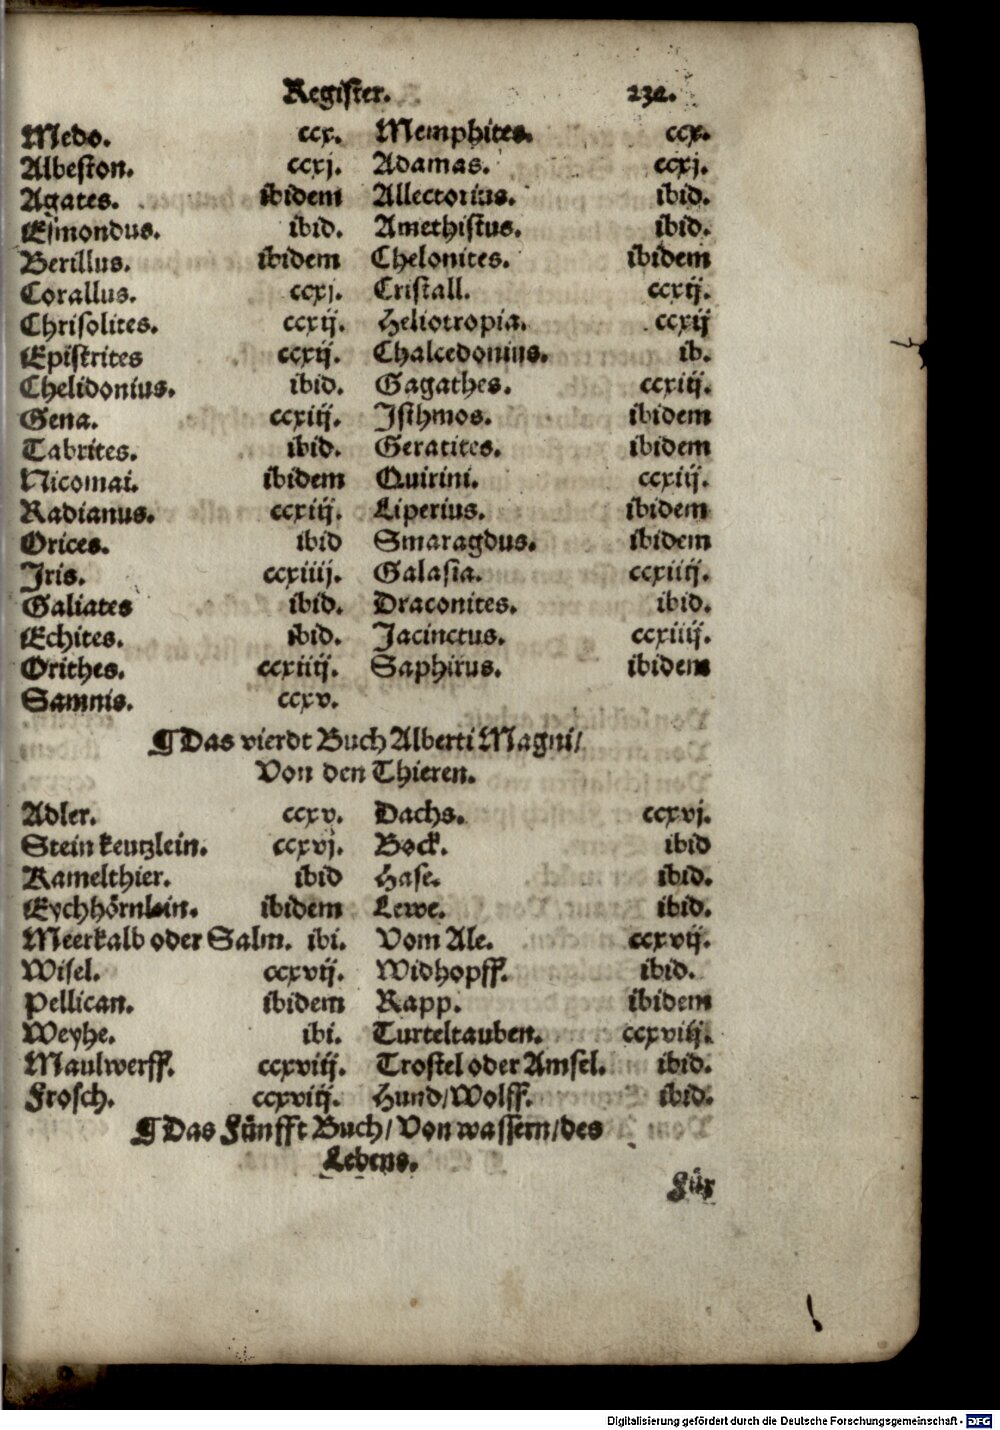 Register. 232.
Medo. ccx. Memphites. ccx.
Albeston. ccxj. Adamas. ccxj.
Agates. ibidem Allectorius. ibid.
Esmondus. ibid. Amethistus. ibid.
Berillus. ibidem Chelonites. ibidem
Corallus. ccxj. Cristall. ccxij.
Chrisolites. ccxij. Heliotropia. ccxij
Epistrites ccxij. Chalcedonius. ib.
Chelidonius. ibid. Gagathes. ccxiij.
Gena. ccxiij. Isthmos. ibidem
Tabrites. ibid. Geratites. ibidem
Nicomai. ibidem Quirini. ccxiij.
Radianus. ccxiij. Liperius. ibidem
Orices. ibid Smaragdus. ibidem
Iris. ccxiiij. Galasia. ccxiiij.
Galiates ibid. Draconites. ibid.
Echites. ibid. Jacinctus. ccxiiij.
Orithes. ccxiiij. Saphirus. ibidem
Samnis. ccxv.
¶ Das vierdt Buch Alberti Magni/
Von den Thieren.
Adler. ccxv. Dachs. ccxvj.
Stein keutzlein. ccxvj. Bock. ibid
Kamelthier. ibid Hase. ibid.
Eychhörnlein. ibidem Lewe. ibid.
Meerkalb oder Salm. ibi. Vom Ale. ccxvij.
Wisel. ccxvij. Widhopff. ibid.
Pellican. ibidem Rapp. ibidem
Weyhe. ibi. Turteltauben. ccxviij.
Maulwerff. ccxviij. Trostel oder Amsel. ibid.
Frosch. ccxviij. Hund/Wolff. ibid.
¶ Das Fünfft Buch/ Von wassern/des
Lebens.
Für
Digitalisierung gefördert durch die Deutsche Forschungsgemeinschaft - DFG